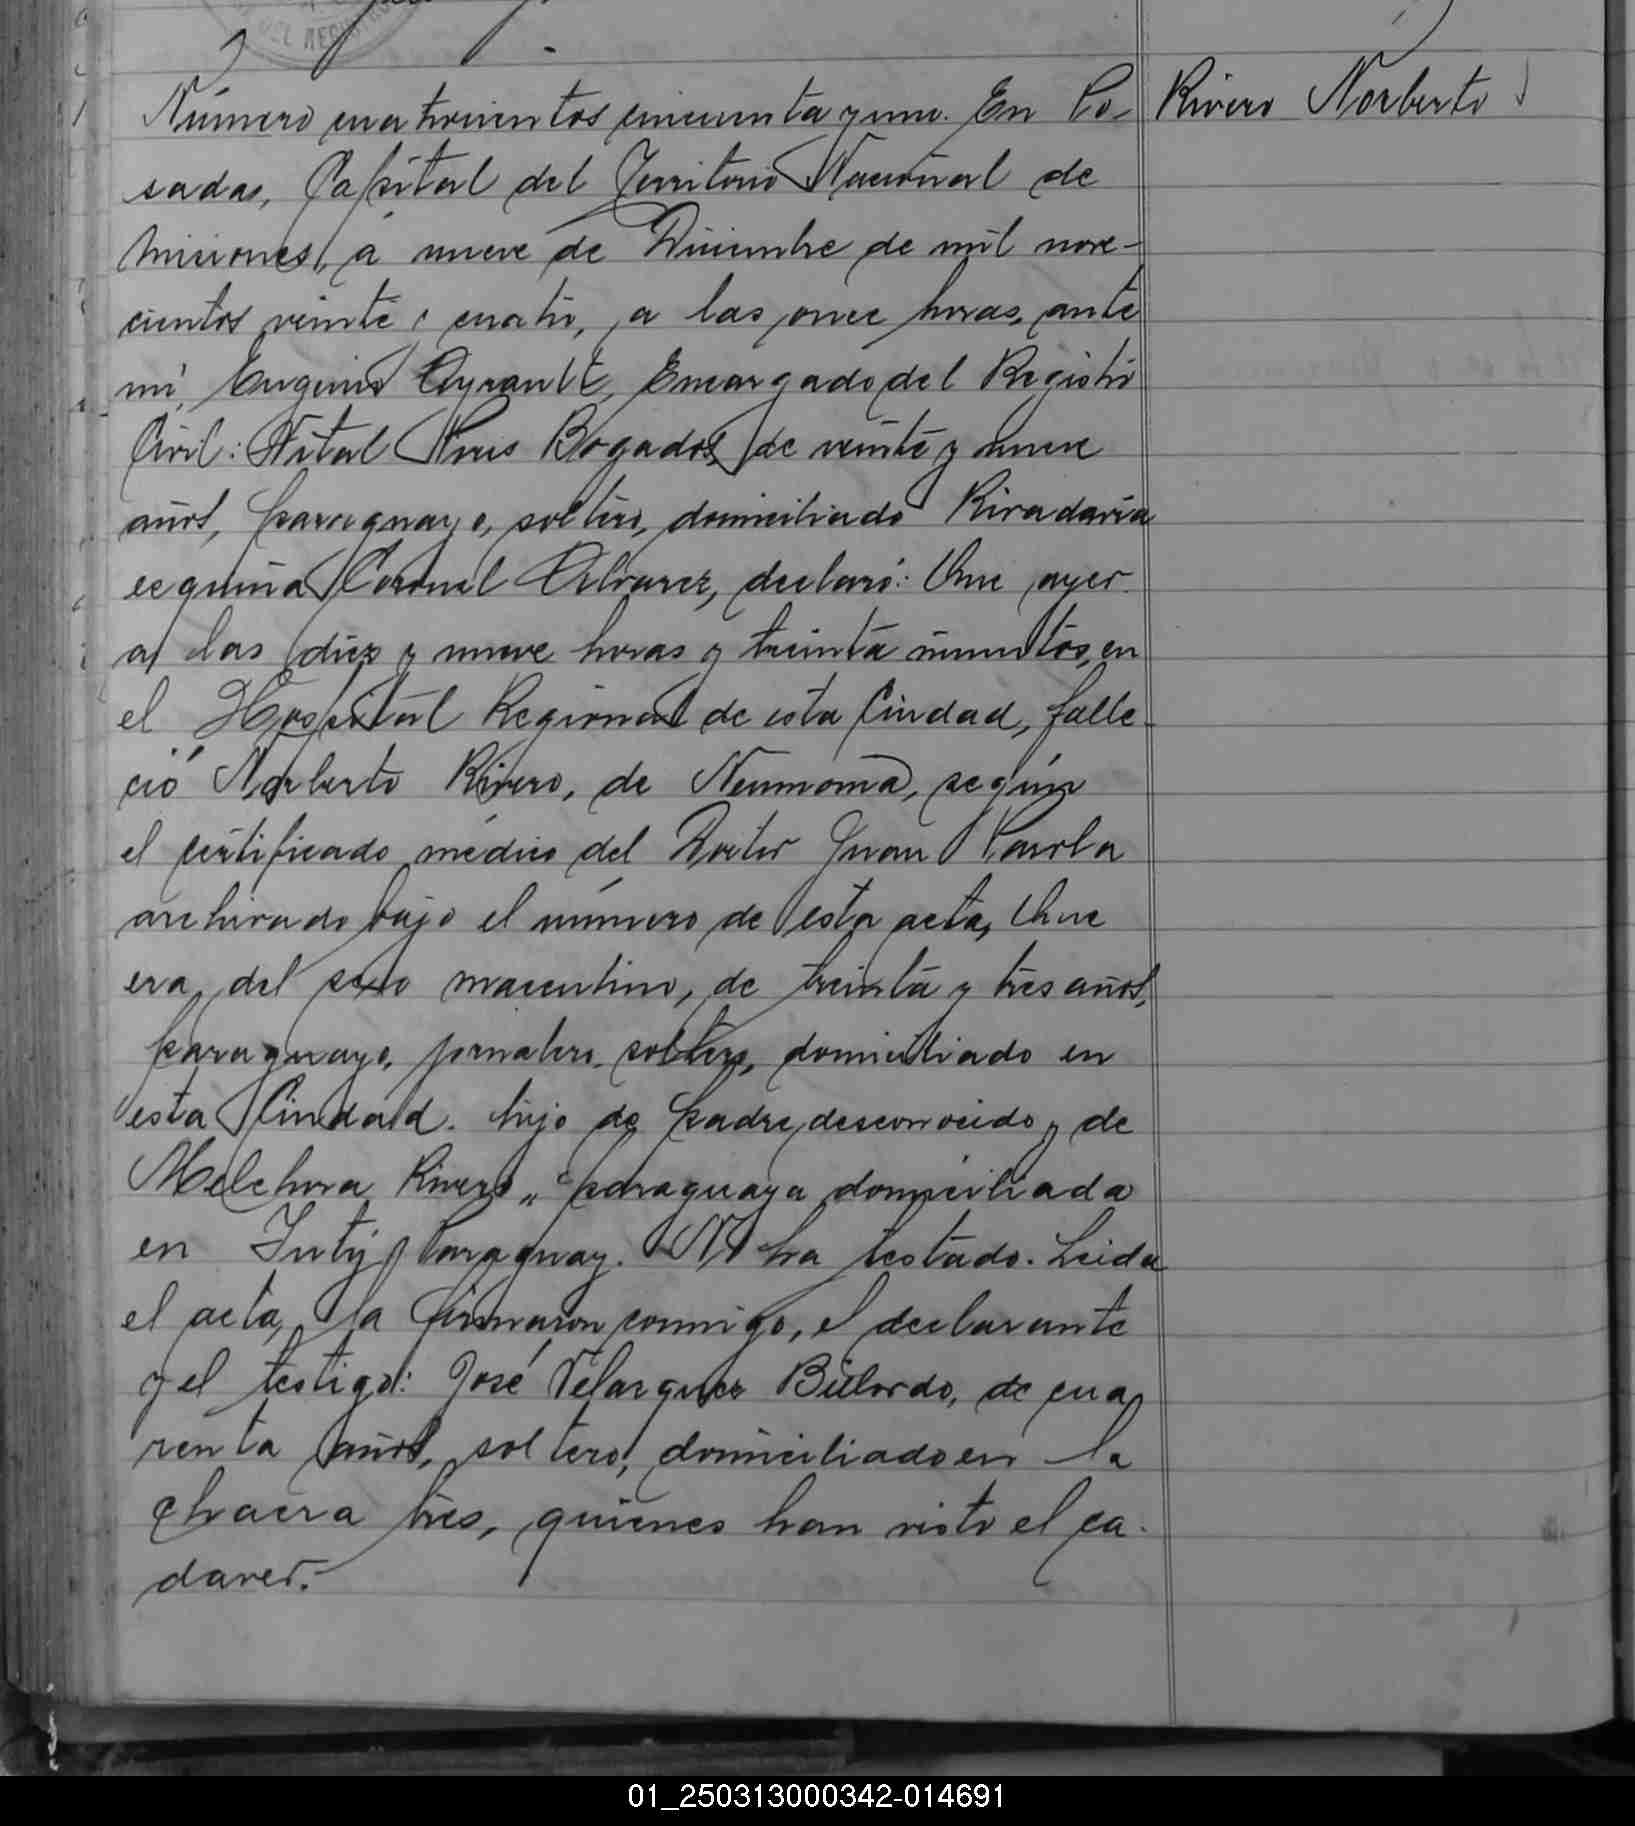 DEL REGISTRO
Número cuatrocientos cincuenta y uno. En Po-
sadas, Capital del Territorio Nacional de
Misiones, a nueve de Diciembre de mil nove-
cientos veinte y cuatro, a las once horas, ante
mí, Eugenio Ayrault, Encargado del Registro
Civil: Vital Bogados, de veinte y nueve
años, paraguayo, soltero, domiciliado Rivadavia
esquina Coronel Alvarez, declaró: Que ayer
a las diez y nueve horas y treinta minutos, en
el Hospital Regional de esta Ciudad, falle-
ció Norberto Rivero, de Neumonia, según
el certificado médico del Doctor Juan
archivado bajo el número de esta acta, Que
era del sexo masculino, de treinta y tres años,
paraguayo, jornalero, soltero, domiciliado en
esta Ciudad. hijo de padre desconocido y de
Melchora Rivero, paraguaya domiciliada
en Yuty, Paraguay. No ha testado. Leida
el acta, la firmaron conmigo, el declarante
y el testigo: José Velazquez de cua
renta años, soltero, domiciliado en la
chacra tres, quienes han visto el ca-
daver.
Rivero Norberto
01_250313000342-014691